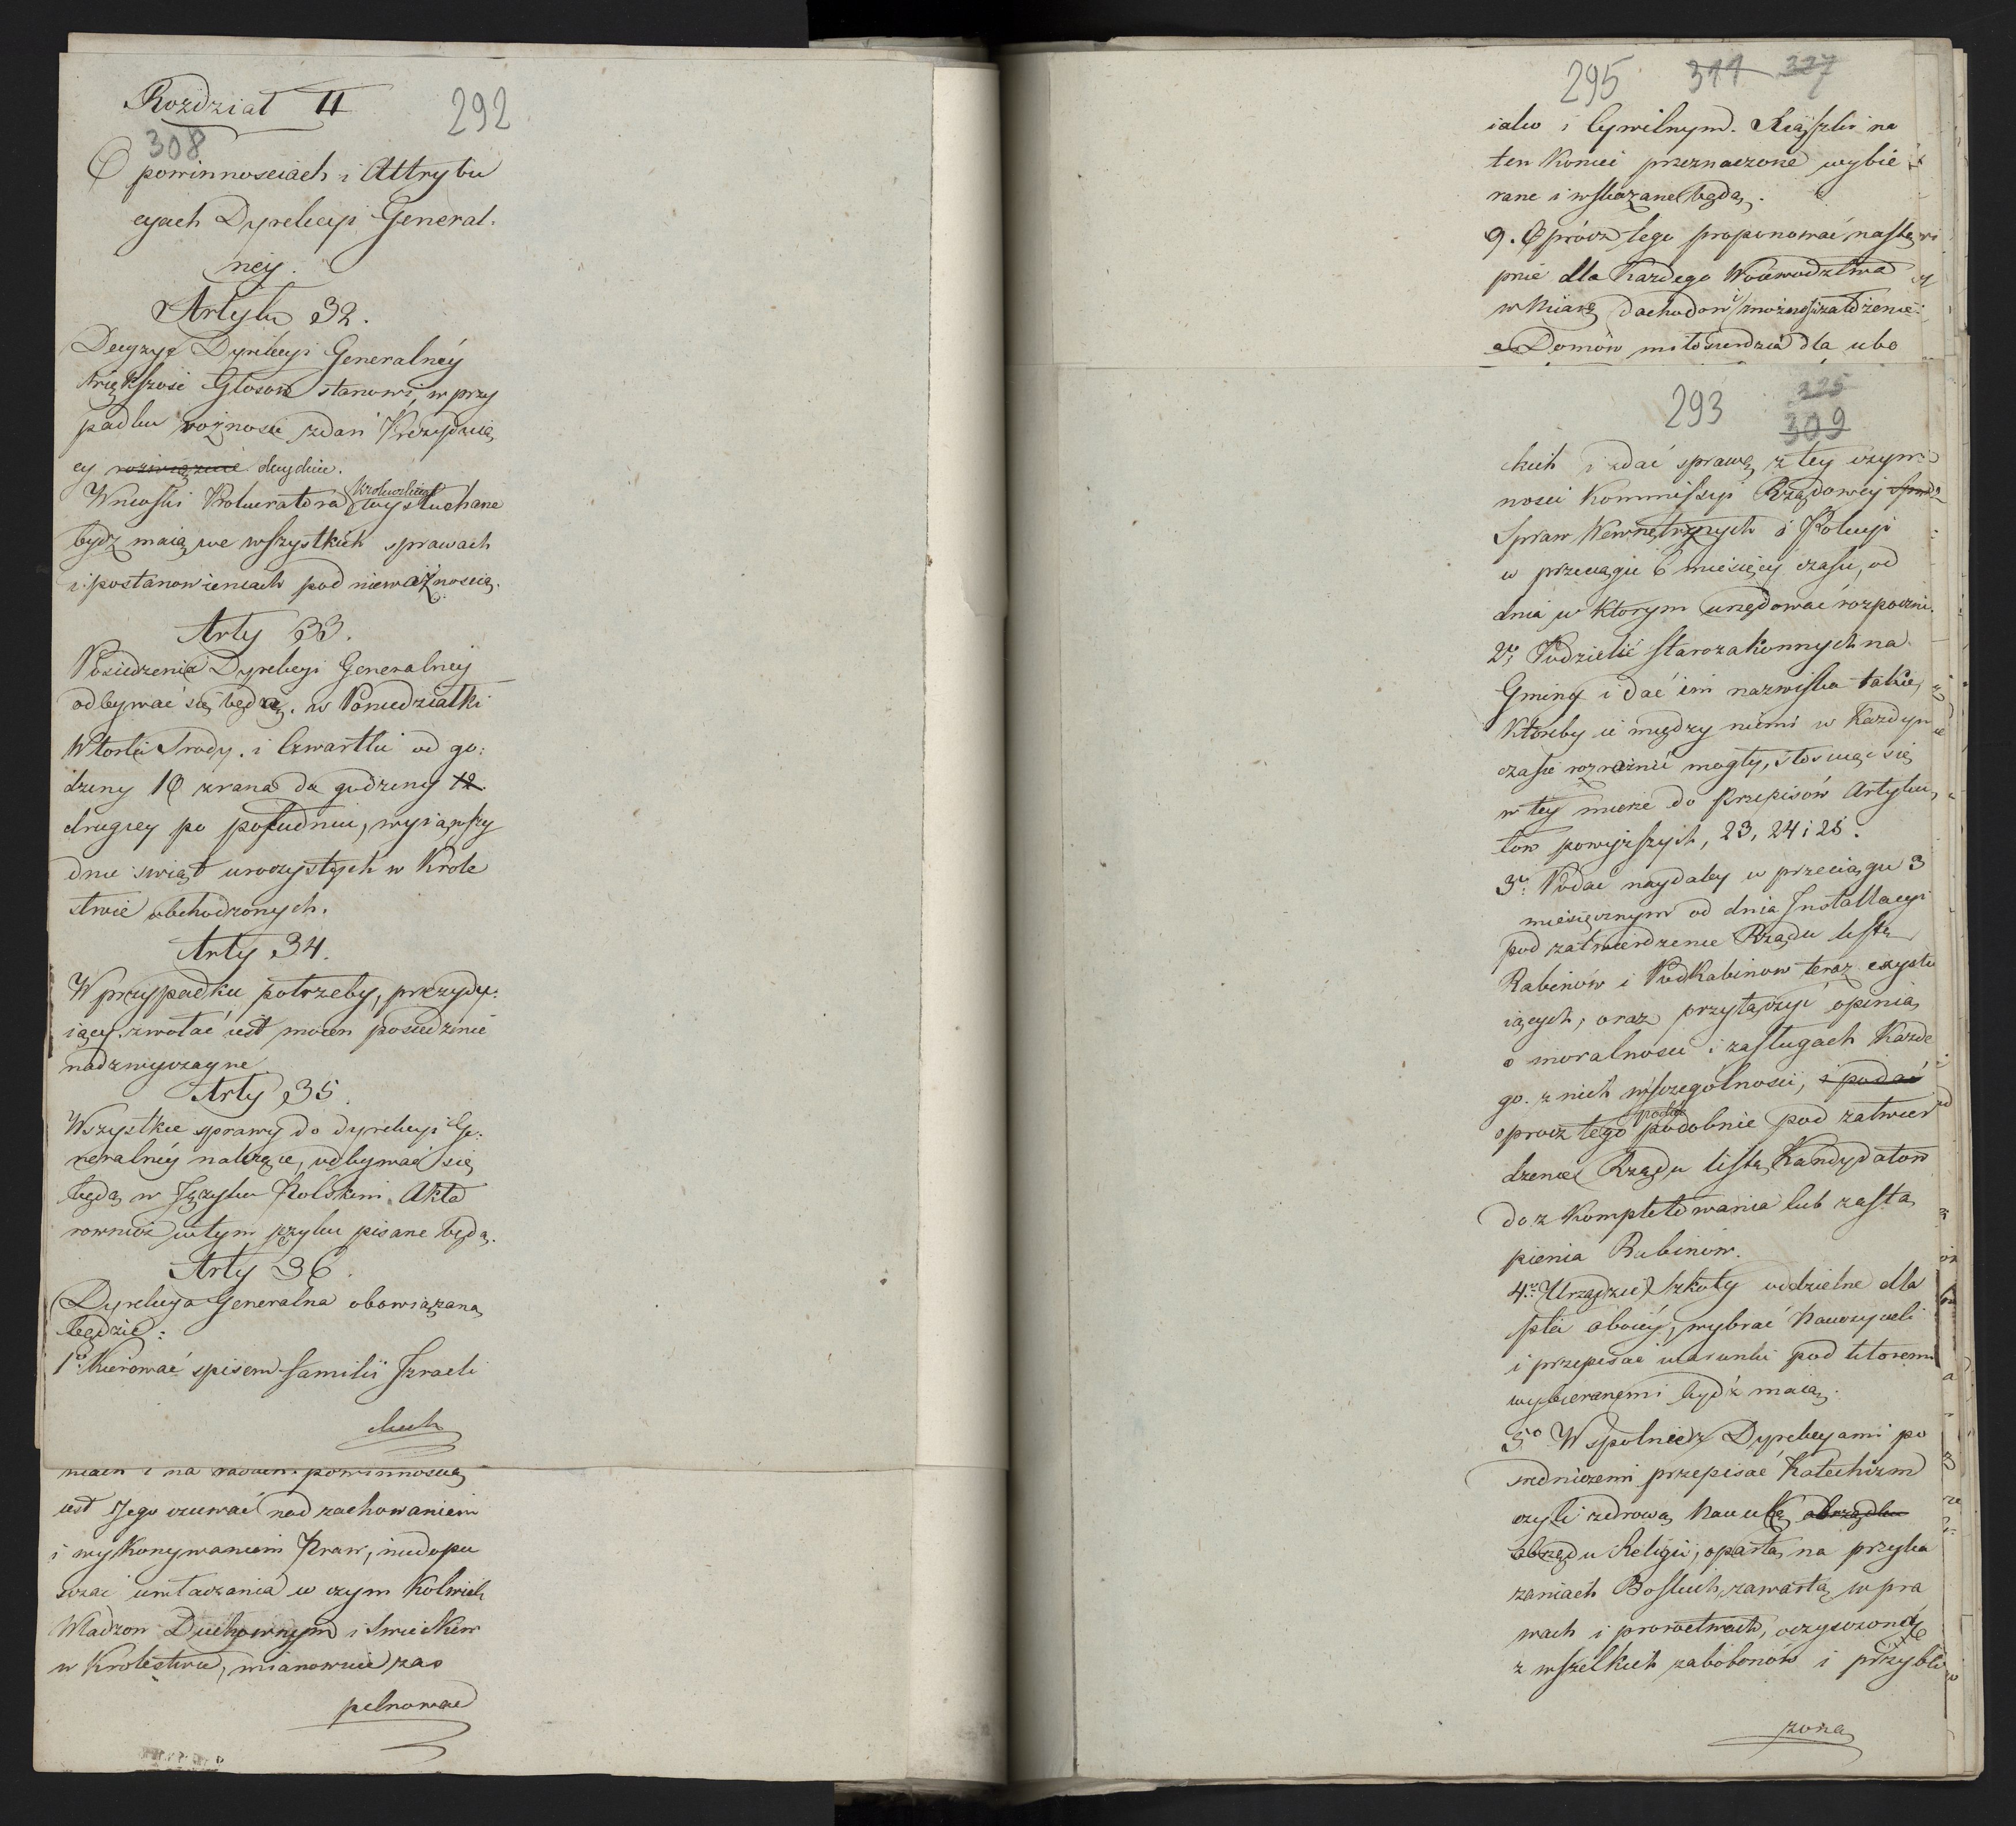 Rozdział II
292
308
O powinnosciach i Attrybu
cyach Dyrekcyi General.
ney.
Artyku 32.
Decyzye Dyrekcyi Generalnéy
większosc Głosow stanowi, w przy
padku rożnosci zdań Prezyduią
cy rozwiązuie decyduie.
Wnioski Prokuratora Krolewskiego wysłuchane
bydz maią we wszystkich sprawach
i postanowieniach pod nieważnoscią.
Arty 33.
Posiedzenia Dyrekcyi Generalney
odbywać się będą. w Poniedziałki
Wtorki Srody. i Czwartki od go:
dziny 10 zrana do godziny 12.
drugiey po południu, wyiąwszy
dnie swiąt uroczystych w Krole
stwie obchodzonych.
Arty 34.
W przypadku potrzeby, prezydu:
iący zwołać iest mocen posiedzenie
nadzwyczayne.
Arty 35.
Wszystkie sprawy do dyrekcyi Ge:
neralnéy należące, odbywać się
będą w Języku Polskim. Akta
rownież wtym języku pisane będą.
Arty 36.
Dyrekcya Generalna obowiązana
będzie:
1o. Kierować spisem familii Izraeli
ckich
niach i na radzie. powinnoscią
iest Jego czuwać nad zachowaniem
i wykonywaniem Praw, niedopu
szczać uwłaczania w czym kolwiek
Władzom Duchownym i Swieckim
w Krolestwie, mianowicie zas
pełnowac
295 311 327
ialw i Cywilnym. Książki na
ten koniec przeznaczone wybie
rane i wskazane będą.
9. Oprócz tego proponować nastę
pnie dla każdego Woiewodztwa
w miarę dochodow i możnosci założenie
Domów miłosierdzia dla ubo
293 325
309
ckich i zdać sprawę z tey czyn
nosci Kommissyi Rządowey
Spraw Wewnętrznych i Policyi
w przeciągu 6 miesięcy czasu, od
dnia w ktorym urzędować rozpoczni.
2o. Podzielić starozakonnych na
Gminy i dać im nazwiska takie,
któreby ie między niemi w każdym
czasie rozróżnić mogły, stosuiąc się
w tey mierze do Przepisów Artyku,
łow powyższych, 23, 24 i 25.
3o. Podac naydaley w przeciągu 3
miesięcznym od dnia Installacyi
pod zatwierdzenie Rządu listę
Rabinów i PodRabinow teraz exystu
iących, oraz przyłączyć opinią
o moralnosci i zasługach każde
go z nich wszczególnosci, i podać
oprocz tego podać podobnie pod zatwier
dzenie Rządu listę Kandydatow
do z kompletowania lub zastą
pienia Rabinow.
4o. Urządzić Szkoły oddzielne dla
płci oboiéy, wybrać Nauczycieli
i przepisać warunki pod ktoremi
wybieranemi bydź maią.
5o Wspolnie z Dyrekcyami po
sredniczemi przepisać Katechizm
czyli zdrową Naukę obrządku
obrzędu Religii, opartą na przyka
zaniach Boskich, zawartą w pra
wach i proroctwach, oczyszczoną
z wszelkich zabobonów i przybli
żoną